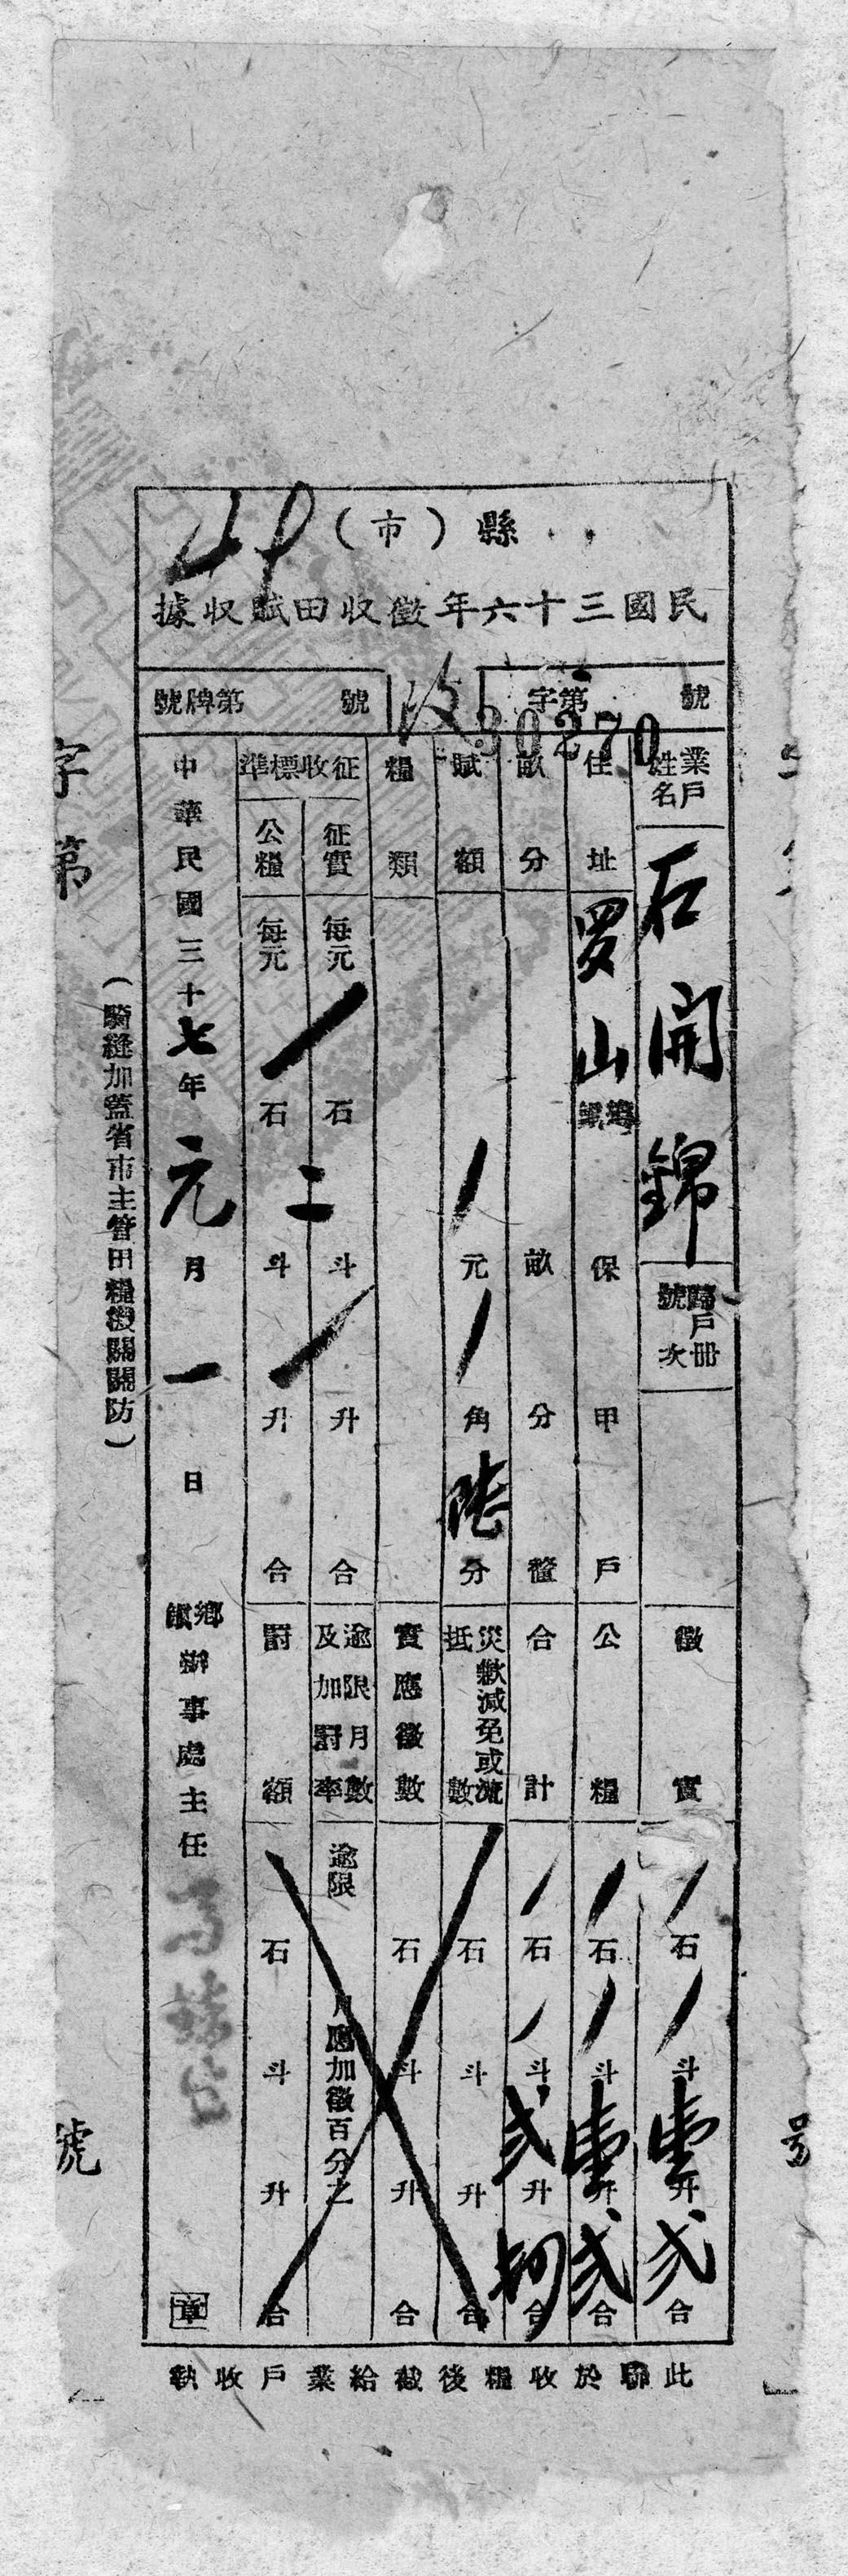 縣（市）
民國三十六年徵收田賦收據
字第 號
30270
改
號牌第 號
業戶姓名 石開錦
歸戶冊號次
徵實 石 斗 壹升 弍合
住址 罗山鄉鎮 保 甲 戶
公糧 石 斗 壹升 弍合
畝分 畝 分 釐
合計 石 斗 弍升 合
賦額 元 角 陸分
災歉減免或流抵數 石 斗 升 合
糧類
實應徵數 石 斗 升 合
征收標準
征實 每元 石 二斗 升 合
逾限月數及加罰率 逾限 月應加徵百分之
公糧 每元 石 二斗 升 合
罰額 石 斗 升 合
中華民國三十七年元月一日
鄉鎮辦事處主任
章
（騎縫加蓋省市主管田糧機關關防）
字第 號
此聯於收糧後截給業戶收執